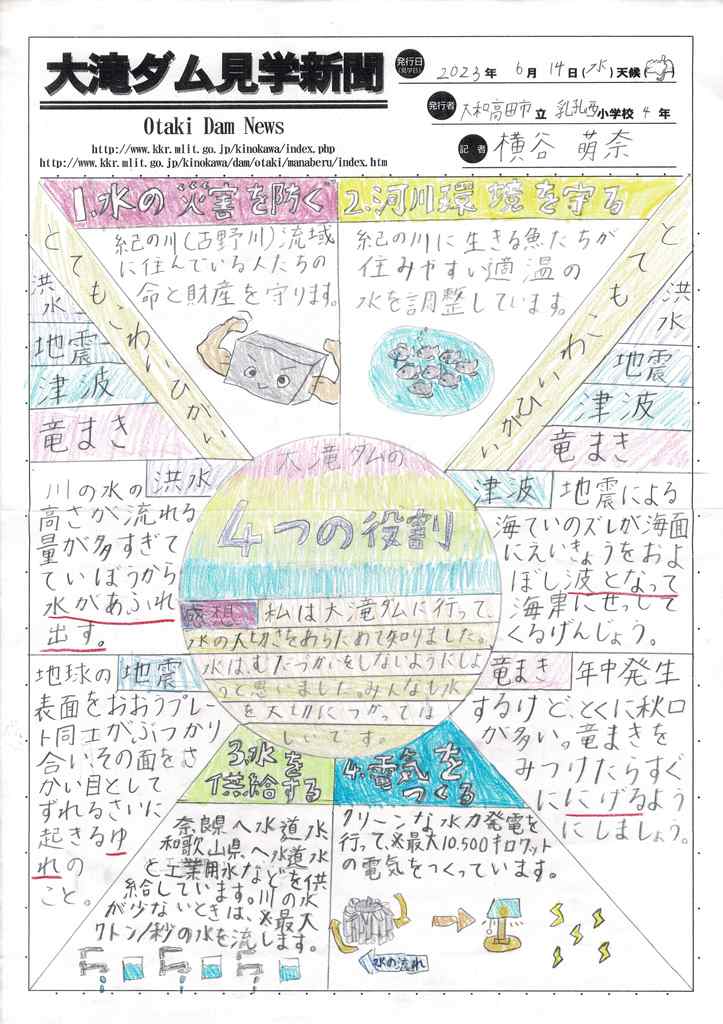 大滝ダム見学新聞
Otaki Dam News
http://www.kkr.mlit.go.jp/kinokawa/index.php
http://www.kkr.mlit.go.jp/kinokawa/dam/otaki/manaberu/index.htm
発行日
(見学日)
2023年 6月 14日(水)天候
発行者
大和高田市立 小学校 4年
記者
横谷 萌奈
1.水の災害を防ぐ
紀の川(吉野川)流域
に住んでいる人たちの
命と財産を守ります。
2.河川環境を守る
紀の川に生きる魚たちが
住みやすい適温の
水を調整しています。
とてもこわいひがい
洪水
地震
津波
竜まき
とてもこわいひがい
洪水
地震
津波
竜まき
大滝ダムの
4つの役割
感想 私は大滝ダムに行って、
水の大切さをあらためて知りました。
水はむだづかいをしないようにしよ
うと思いました。みんなも水
を大切につかってほ
しいです。
洪水
川の水の
高さが流れる
量が多すぎて
ていぼうから
水があふれ
出す。
地震
地球の
表面をおおうプレー
ト同士がぶつかり
合い、その面をさ
かい目として
ずれるさいに
起きるゆ
れの
こと。
津波 地震による
海ていのズレが海面
にえいきょうをおよ
ぼし波となって
海岸にせっして
くるげんしょう。
竜まき 年中発生
するけど、とくに秋口
が多い。竜まきを
みつけたらすぐ
ににげるよう
にしましょう。
3.水を
供給する
奈良県へ水道水
和歌山県へ水道水
と工業用水などを供
給しています。川の水
が少ないときは、※最大
7トン/秒の水を流します。
4.電気を
つくる
クリーンな水力発電を
行って、※最大10.500キロワット
の電気をつくっています。
水の流れ